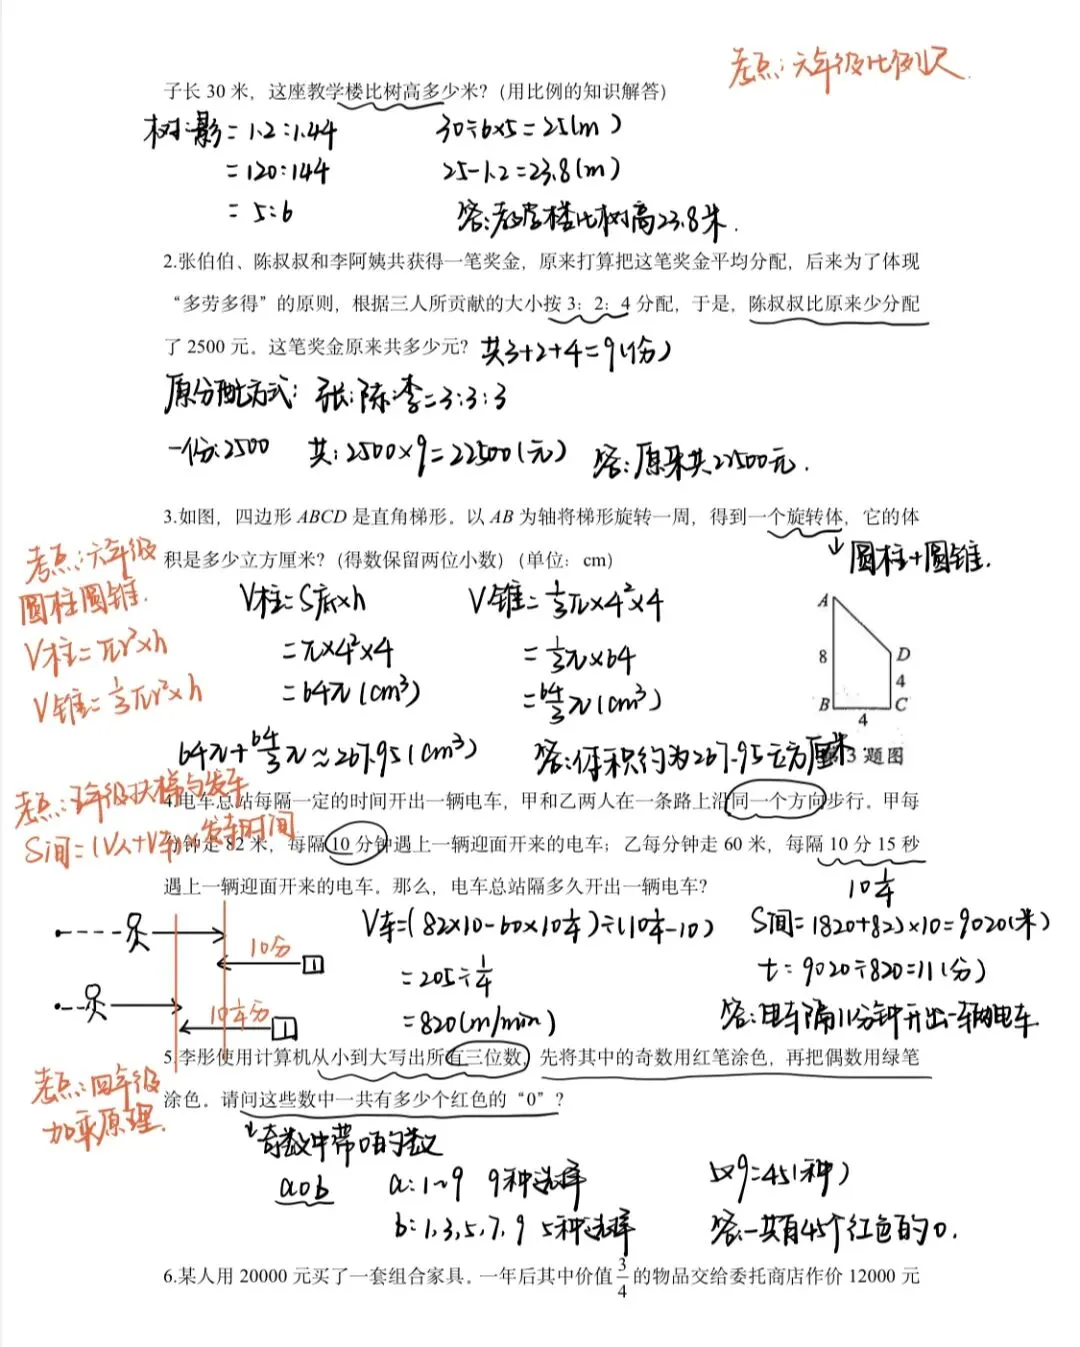 考点:六年级比例尺
子长 30 米，这座教学楼比树高多少米？(用比例的知识解答)
树:影=1.2:1.44
=120:144
=5:6
30÷6×5=25(m)
25-1.2=23.8(m)
答:教学楼比树高23.8米.
2.张伯伯、陈叔叔和李阿姨共获得一笔奖金，原来打算把这笔奖金平均分配，后来为了体现
“多劳多得”的原则，根据三人所贡献的大小按 3：2：4 分配，于是，陈叔叔比原来少分配
了 2500 元。这笔奖金原来共多少元？ 共3+2+4=9(份)
原分配方式: 张:陈:李=3:3:3
一份:2500 共:2500×9=22500(元) 答:原来共22500元.
3.如图，四边形 ABCD 是直角梯形。以 AB 为轴将梯形旋转一周，得到一个旋转体，它的体
积是多少立方厘米？(得数保留两位小数)(单位：cm)
↓圆柱+圆锥.
考点:六年级
圆柱圆锥.
V柱=πr²×h
V锥=1/3πr²×h
V柱=S底×h
=π×4²×4
=64π(cm³)
V锥=1/3π×4²×4
=1/3π×64
=64/3π(cm³)
A
8
D
4
B
C
4
64π+64/3π≈267.95(cm³) 答:体积约为267.95立方厘米.
3 题图
考点:五年级扶梯与发车
S间=(V人+V车)×发车时间
4.电车总站每隔一定的时间开出一辆电车，甲和乙两人在一条路上沿同一个方向步行。甲每
分钟走 82 米，每隔 10 分钟遇上一辆迎面开来的电车；乙每分钟走 60 米，每隔 10 分 15 秒
遇上一辆迎面开来的电车。那么，电车总站隔多久开出一辆电车？
10 1/4
V车=(82×10-60×10 1/4)÷(10 1/4-10)
=205÷1/4
=820(m/min)
S间=(820+82)×10=9020(米)
t=9020÷820=11(分)
答:电车隔11分钟开出一辆电车
10分
10 1/4分
5.李彤使用计算机从小到大写出所有三位数，先将其中的奇数用红笔涂色，再把偶数用绿笔
涂色。请问这些数中一共有多少个红色的“0”？
考点:四年级
加乘原理.
↓奇数中带0的数
a0b
a:1~9 9种选择
b:1,3,5,7,9 5种选择
5×9=45(种)
答:一共有45个红色的0.
6.某人用 20000 元买了一套组合家具。一年后其中价值 3/4 的物品交给委托商店作价 12000 元